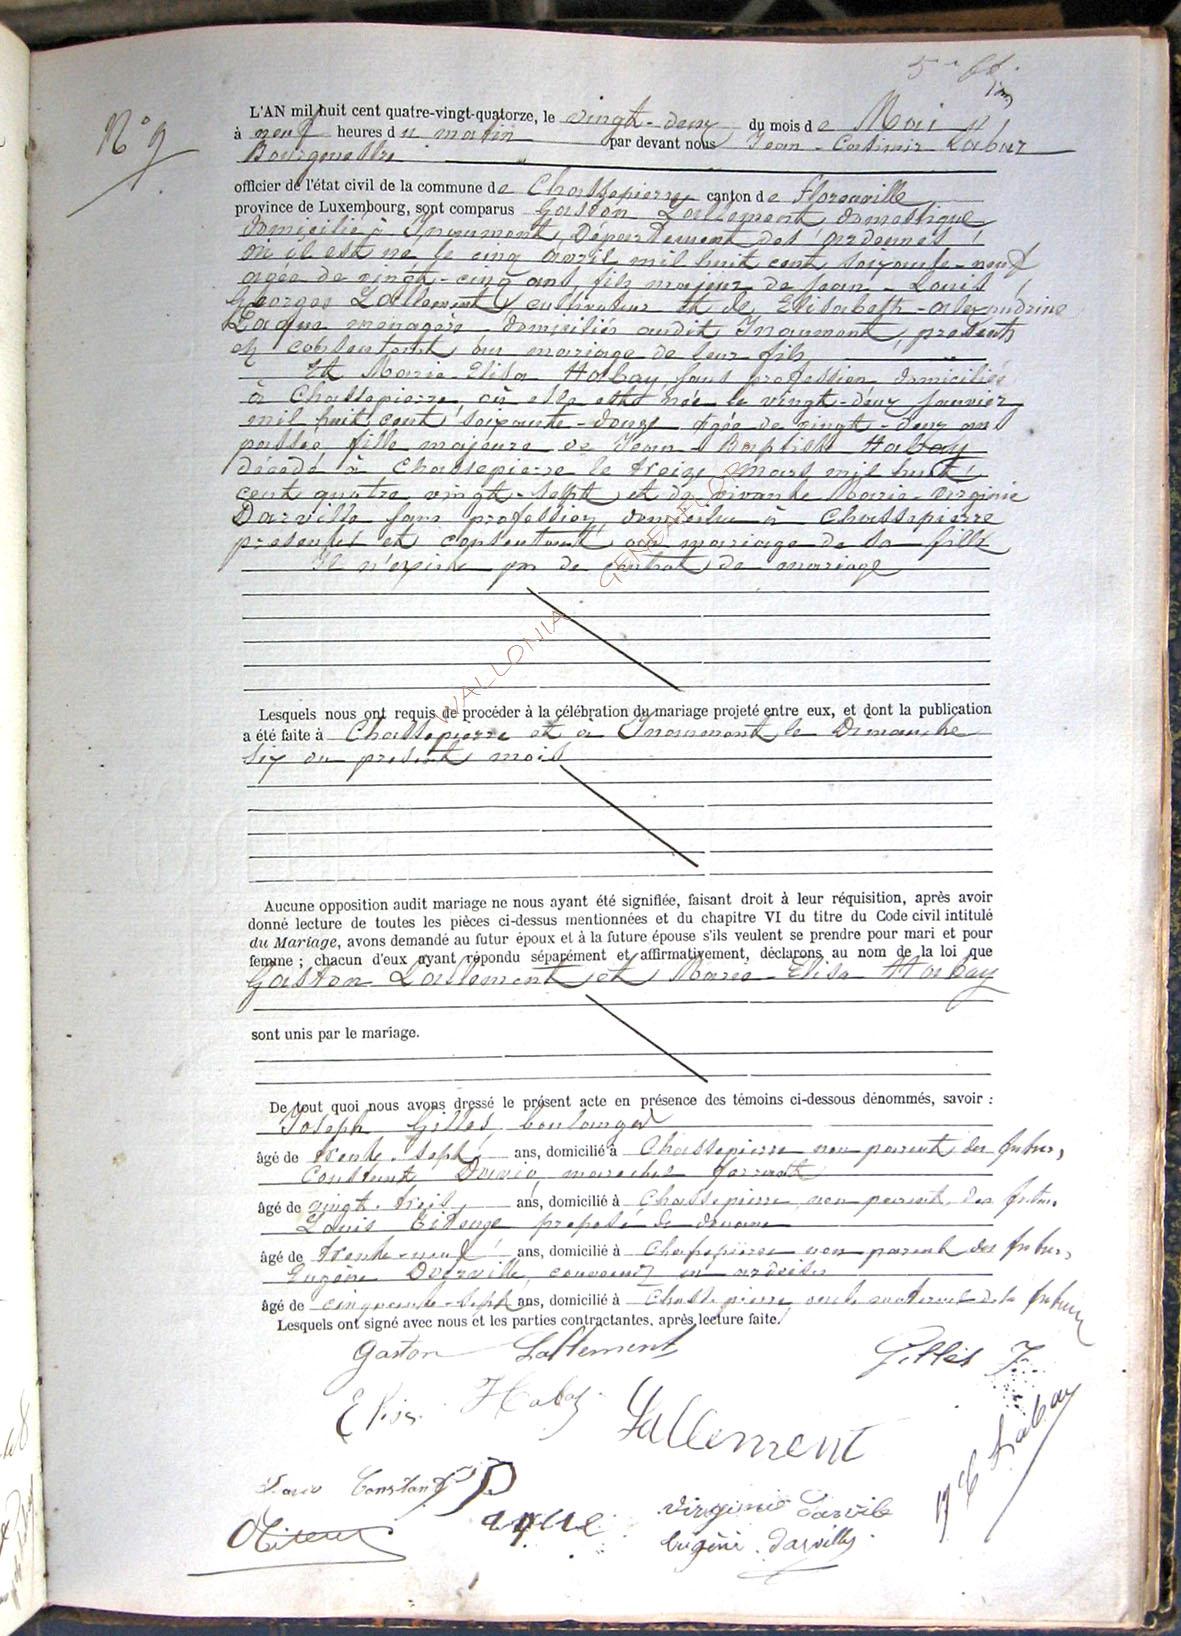 N° 9
L'AN mil huit cent quatre-vingt-quatorze, le vingt-deux du mois de Mai
à neuf heures du matin par devant nous Jean-Casimir Habaz
Bourgmestre
officier de l'état civil de la commune de Chassepierre canton de Florenville
province de Luxembourg, sont comparus Gaston Lallement domestique
domicilié à Inaumont, Département des Ardennes
où il est né le cinq avril mil huit cent soixante-neuf
agée de vingt-cinq ans fils majeur de Jean-Louis
Georges Lallement cultivateur et de Elisabeth-alexandrine
Paque menagère domiciliés audit Inaumont, présents
et consentant au mariage de leur fils
Et Marie-Elisa Habay sans profession domiciliée
à Chassepierre où elle est née le vingt-deux janvier
mil huit cent soixante-douze agée de vingt-deux ans
passée fille majeure de Jean-Baptiste Habay
décédé à Chassepierre le treize Mars mil huit
cent quatre vingt-sept et de vivante Marie-Virginie
Darville sans profession domiciliée à Chassepierre
présente et consentant au mariage de sa fille
Il n'existe pas de contrat de mariage
WALLONIA GENEAFLOR
Lesquels nous ont requis de procéder à la célébration du mariage projeté entre eux, et dont la publication
a été faite à Chassepierre et à Inaumont le Dimanche
six du présent mois
Aucune opposition audit mariage ne nous ayant été signifiée, faisant droit à leur réquisition, après avoir
donné lecture de toutes les pièces ci-dessus mentionnées et du chapitre VI du titre du Code civil intitulé
du Mariage, avons demandé au futur époux et à la future épouse s'ils veulent se prendre pour mari et pour
femme ; chacun d'eux ayant répondu séparément et affirmativement, déclarons au nom de la loi que
Gaston Lallement et Marie-Elisa Habay
sont unis par le mariage.
De tout quoi nous avons dressé le présent acte en présence des témoins ci-dessous dénommés, savoir :
Joseph Gilles, boulanger
âgé de trente-sept ans, domicilié à Chassepierre non parent des futurs,
Constant marechal ferrant
âgé de vingt-trois ans, domicilié à Chassepierre non parent des futurs.
Louis préposé de douane
âgé de trente-neuf ans, domicilié à Chassepierre non parent des futurs,
Eugène Darville, couvreur en ardoises
âgé de cinquante-sept ans, domicilié à Chassepierre oncle maternel de la future
Lesquels ont signé avec nous et les parties contractantes, après lecture faite.
Gaston Lallement Gilles J
Elisa Habay
Lallement
Constant
Paque Virginie Darville
Eugène Darville